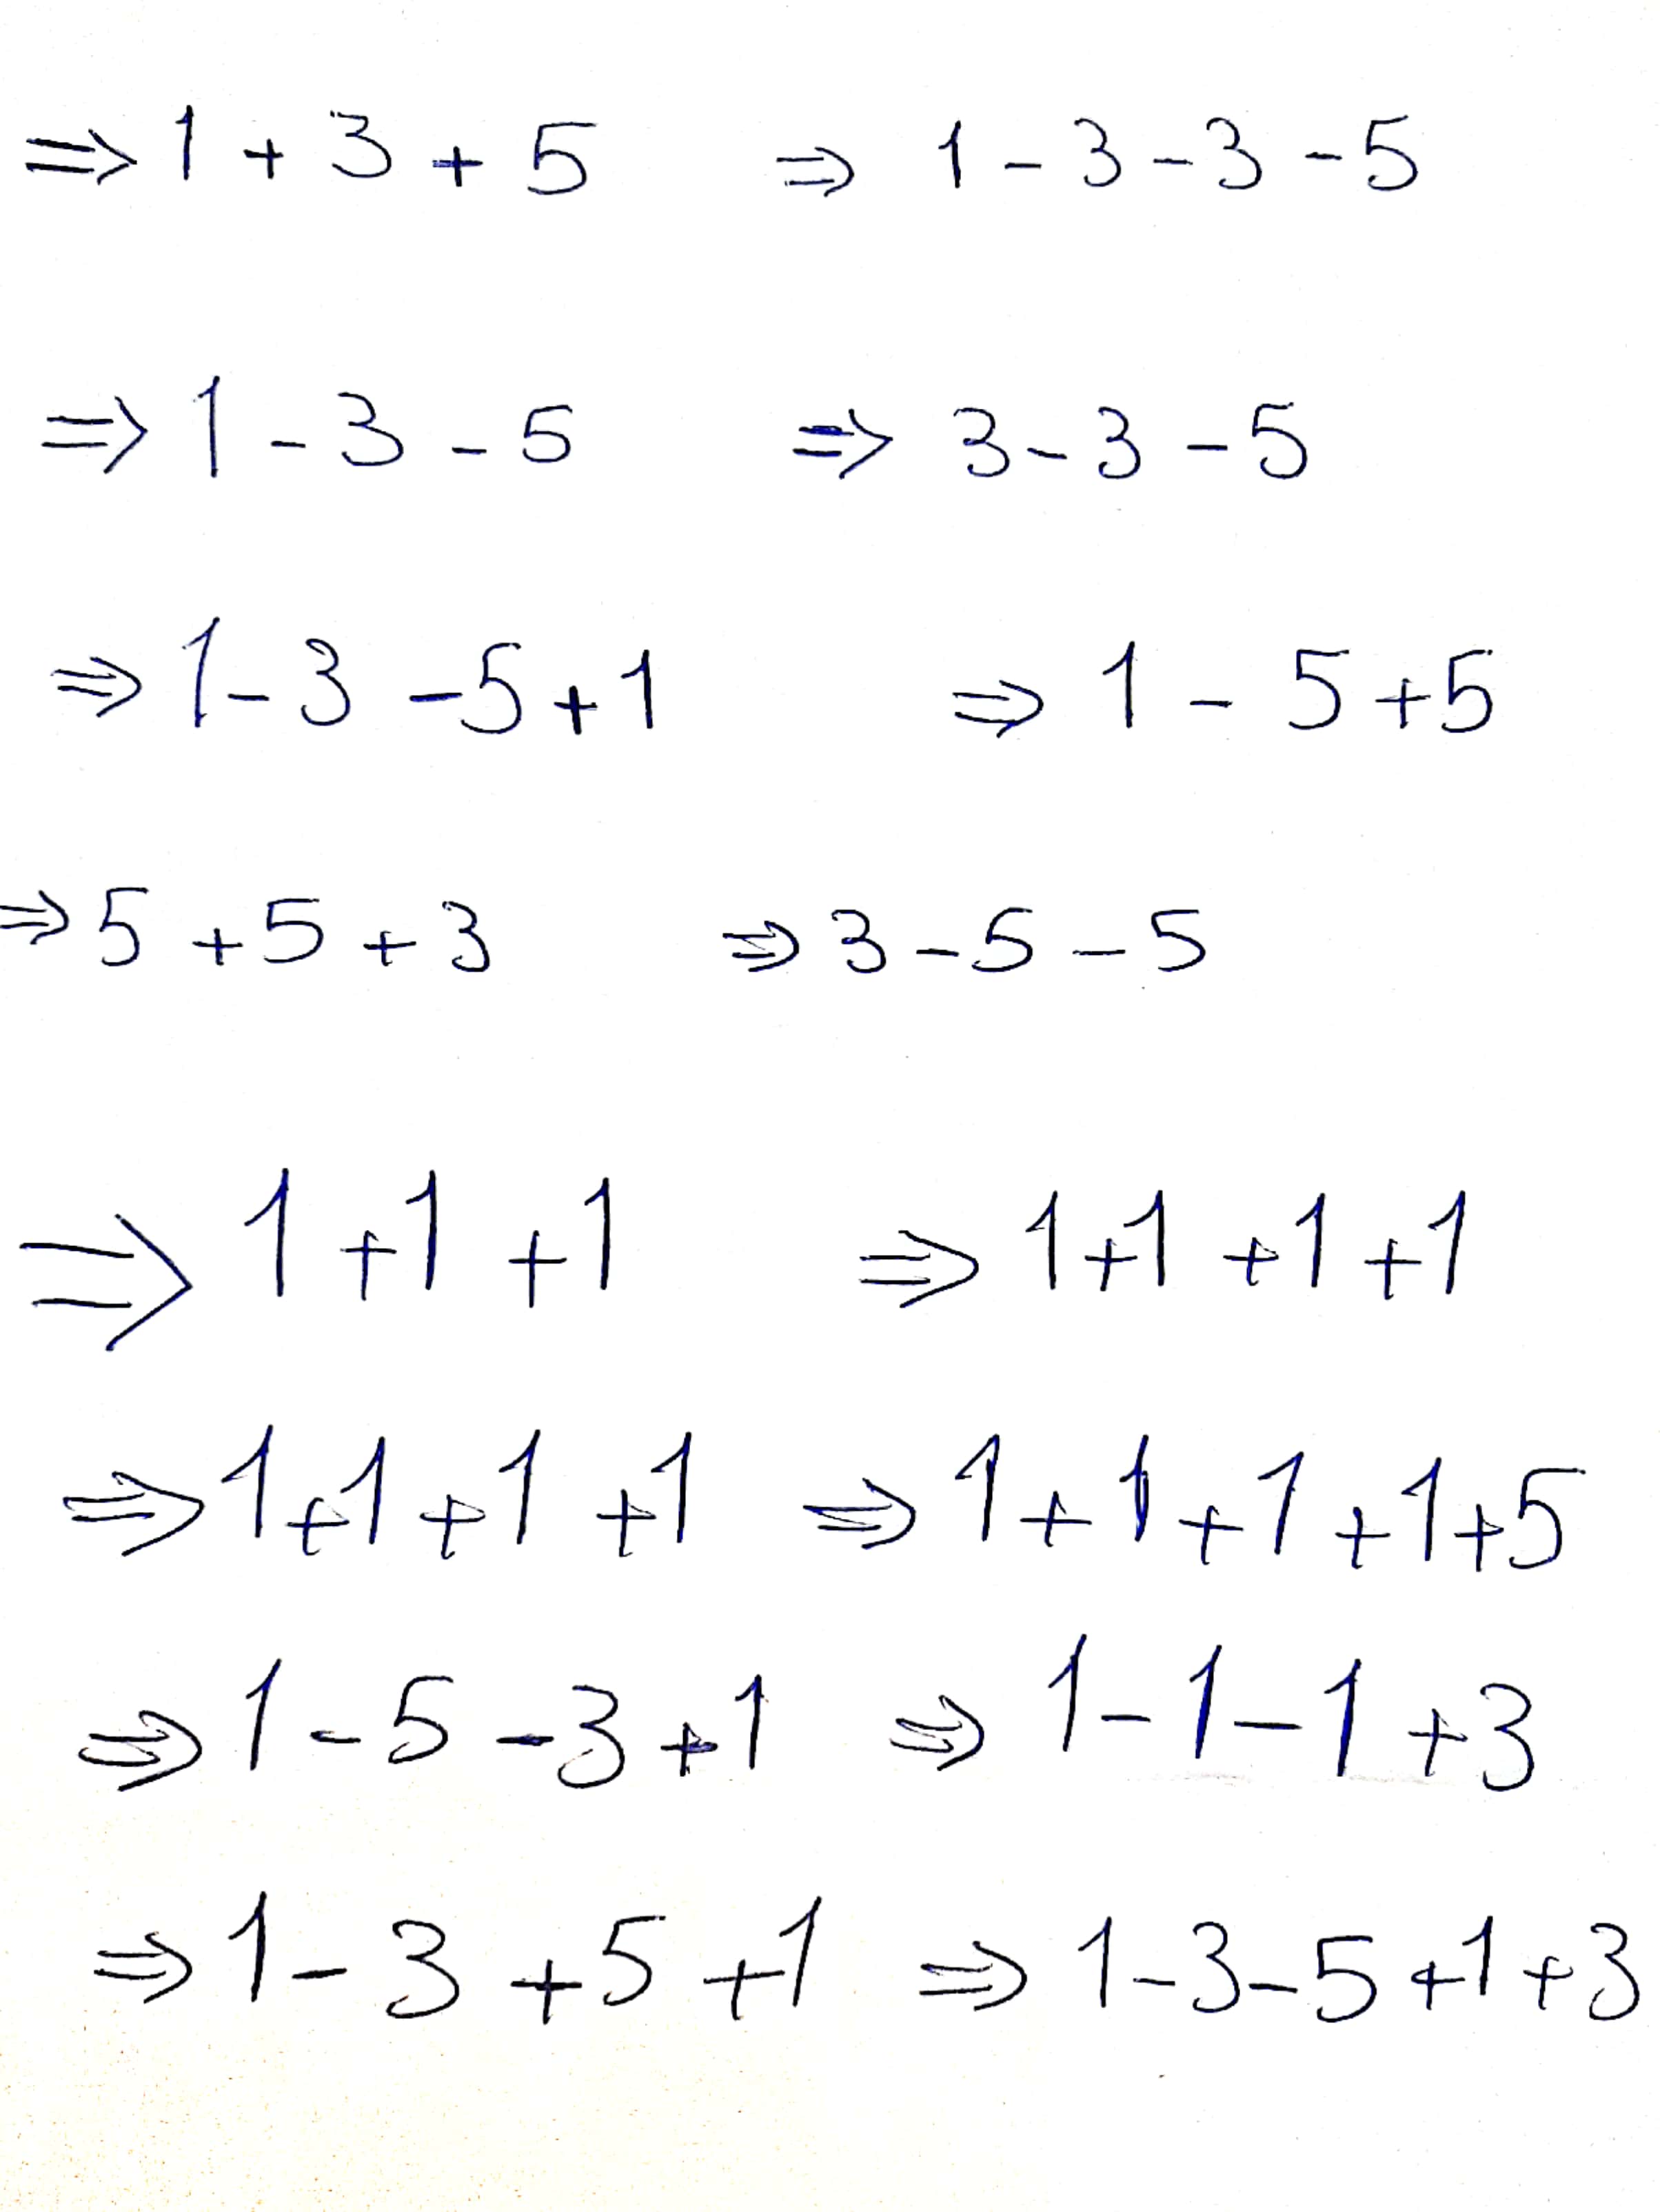 ⇒ 1 + 3 + 5 ⇒ 1 - 3 - 3 - 5
⇒ 1 - 3 - 5 ⇒ 3 - 3 - 5
⇒ 1 - 3 - 5 + 1 ⇒ 1 - 5 + 5
⇒ 5 + 5 + 3 ⇒ 3 - 5 - 5
⇒ 1 + 1 + 1 ⇒ 1 + 1 + 1 + 1
⇒ 1 + 1 + 1 + 1 ⇒ 1 + 1 + 1 + 1 + 5
⇒ 1 - 5 - 3 + 1 ⇒ 1 - 1 - 1 + 3
⇒ 1 - 3 + 5 + 1 ⇒ 1 - 3 - 5 + 1 + 3